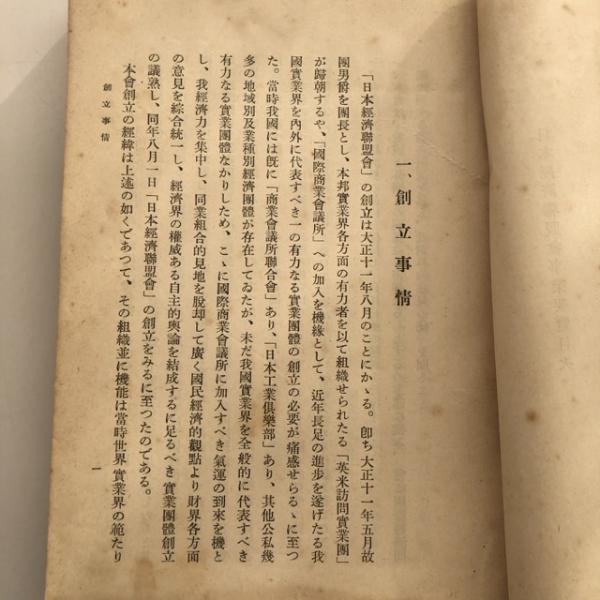 一、創立事情
「日本經濟聯盟會」の創立は大正十一年八月のことにかゝる。卽ち大正十一年五月故
團男爵を團長とし、本邦實業界各方面の有力者を以て組織せられたる「英米訪問實業團」
が歸朝するや、「國際商業會議所」への加入を機緣として、近年長足の進步を遂げたる我
國實業界を內外に代表すべき一の有力なる實業團體の創立の必要が痛感せらるゝに至つ
た。當時我國には旣に「商業會議所聯合會」あり、「日本工業俱樂部」あり、其他公私幾
多の地域別及業種別經濟團體が存在してゐたが、未だ我國實業界を全般的に代表すべき
有力なる實業團體なかりしため、こゝに國際商業會議所に加入すべき氣運の到來を機と
し、我經濟力を集中し、同業組合的見地を脫却して廣く國民經濟的觀點より財界各方面
の意見を綜合統一し、經濟界の權威ある自主的輿論を結成するに足るべき實業團體創立
の議熟し、同年八月一日「日本經濟聯盟會」の創立をみるに至つたのである。
本會創立の經緯は上述の如くであつて、その組織並に機能は當時世界實業界の範たり
創立事情
一